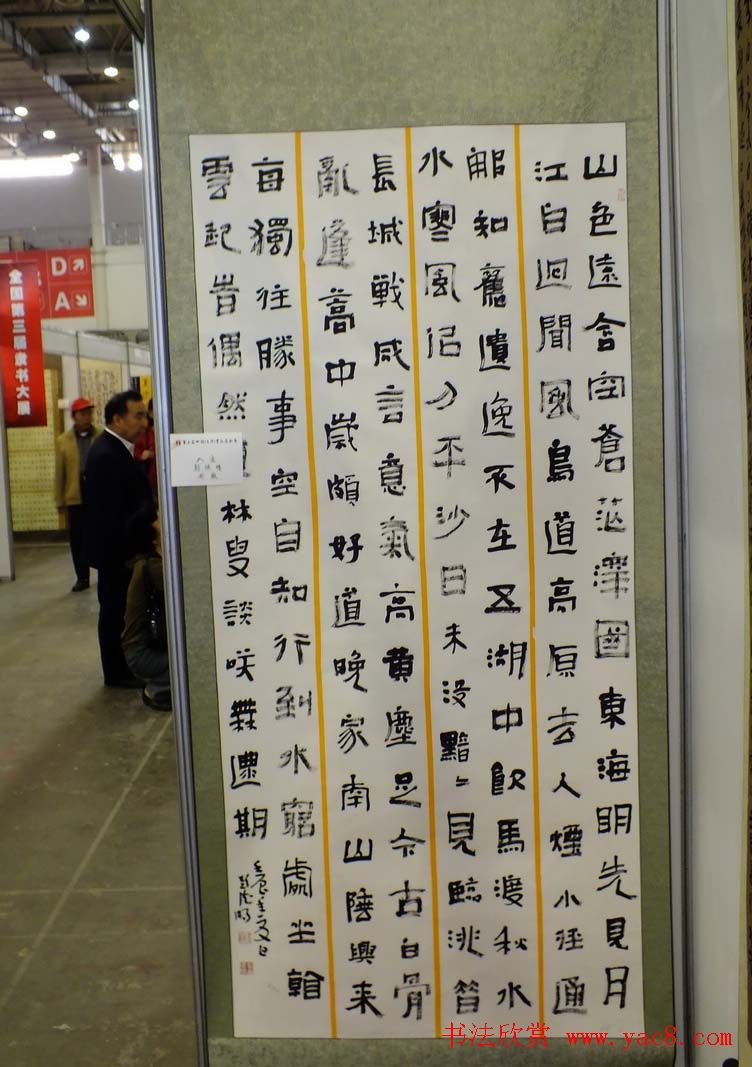 山色遠含空蒼茫澤國東海明先見月
江白迥聞風鳥道高原去人煙小徑通
那知舊遺逸不在五湖中飲馬渡秋水
水寒風似刀平沙日未沒黯〻見臨洮昔
長城戰咸言意氣高黃塵足今古白骨
亂蓬蒿中歲頗好道晚家南山陲興來
每獨往勝事空自知行到水窮處坐翰
雲起昔偶然林叟談咲無還期
全国第三届隶书大展
D
A
书法欣赏 www.yac8.com